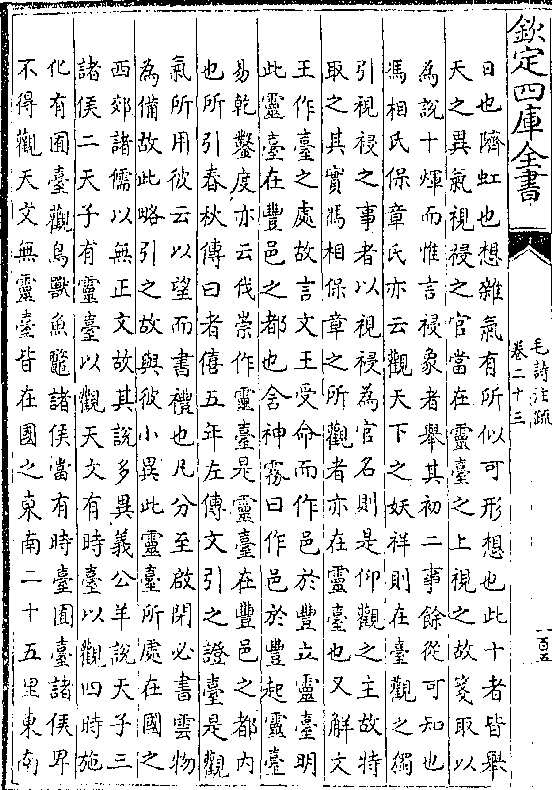 欽定四庫全書
毛詩注疏
卷二十三
百五
日也隮虹也想雜氣有所似可形想也此十者皆舉
天之異氣視祲之官當在靈臺之上視之故箋取以
為說十煇而惟言祲象者舉其初二事餘從可知也
馮相氏保章氏亦云觀天下之妖祥則在臺觀之獨
引視祲之事者以視祲為官名則是仰觀之主故特
取之其實馮相保章之所觀者亦在靈臺也又解文
王作臺之處故言文王受命而作邑於豐立靈臺明
此靈臺在豐邑之都也含神霧曰作邑於豐起靈臺
易乾鑿度亦云伐崇作靈臺是靈臺在豐邑之都内
也所引春秋傳曰者僖五年左傳文引之證臺是觀
氣所用彼云以望而書禮也凡分至啟閉必書雲物
為備故此略引之故與彼小異此靈臺所處在國之
西郊諸儒以無正文故其說多異義公羊說天子三
諸侯二天子有靈臺以觀天文有時臺以觀四時施
化有囿臺觀鳥獸魚鼈諸侯當有時臺囿臺諸侯卑
不得觀天文無靈臺皆在國之東南二十五里東南